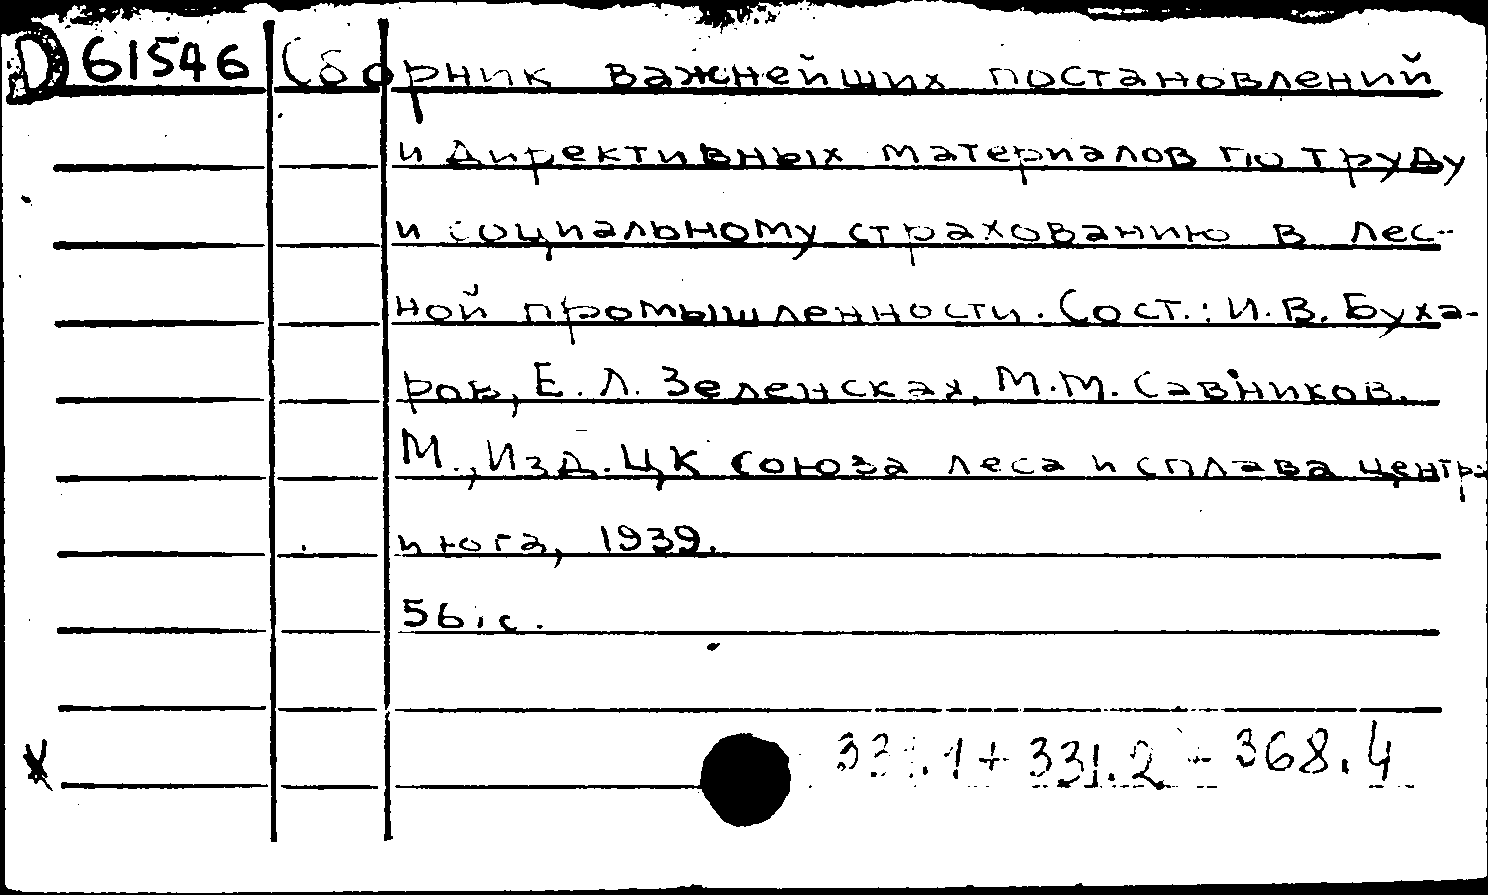 D 61546 Сборник важнейших постановлений
и директивных материалов по труду
и социальному страхованию в лес-
ной промышленности. Сост.: И.В. Буха-
ров, Е.Л. Зеленская, М.М. Савников.
М., Изд. ЦК союза леса и сплава центра
и юга, 1939.
56 с.
331.1 + 331.2 - 368.4